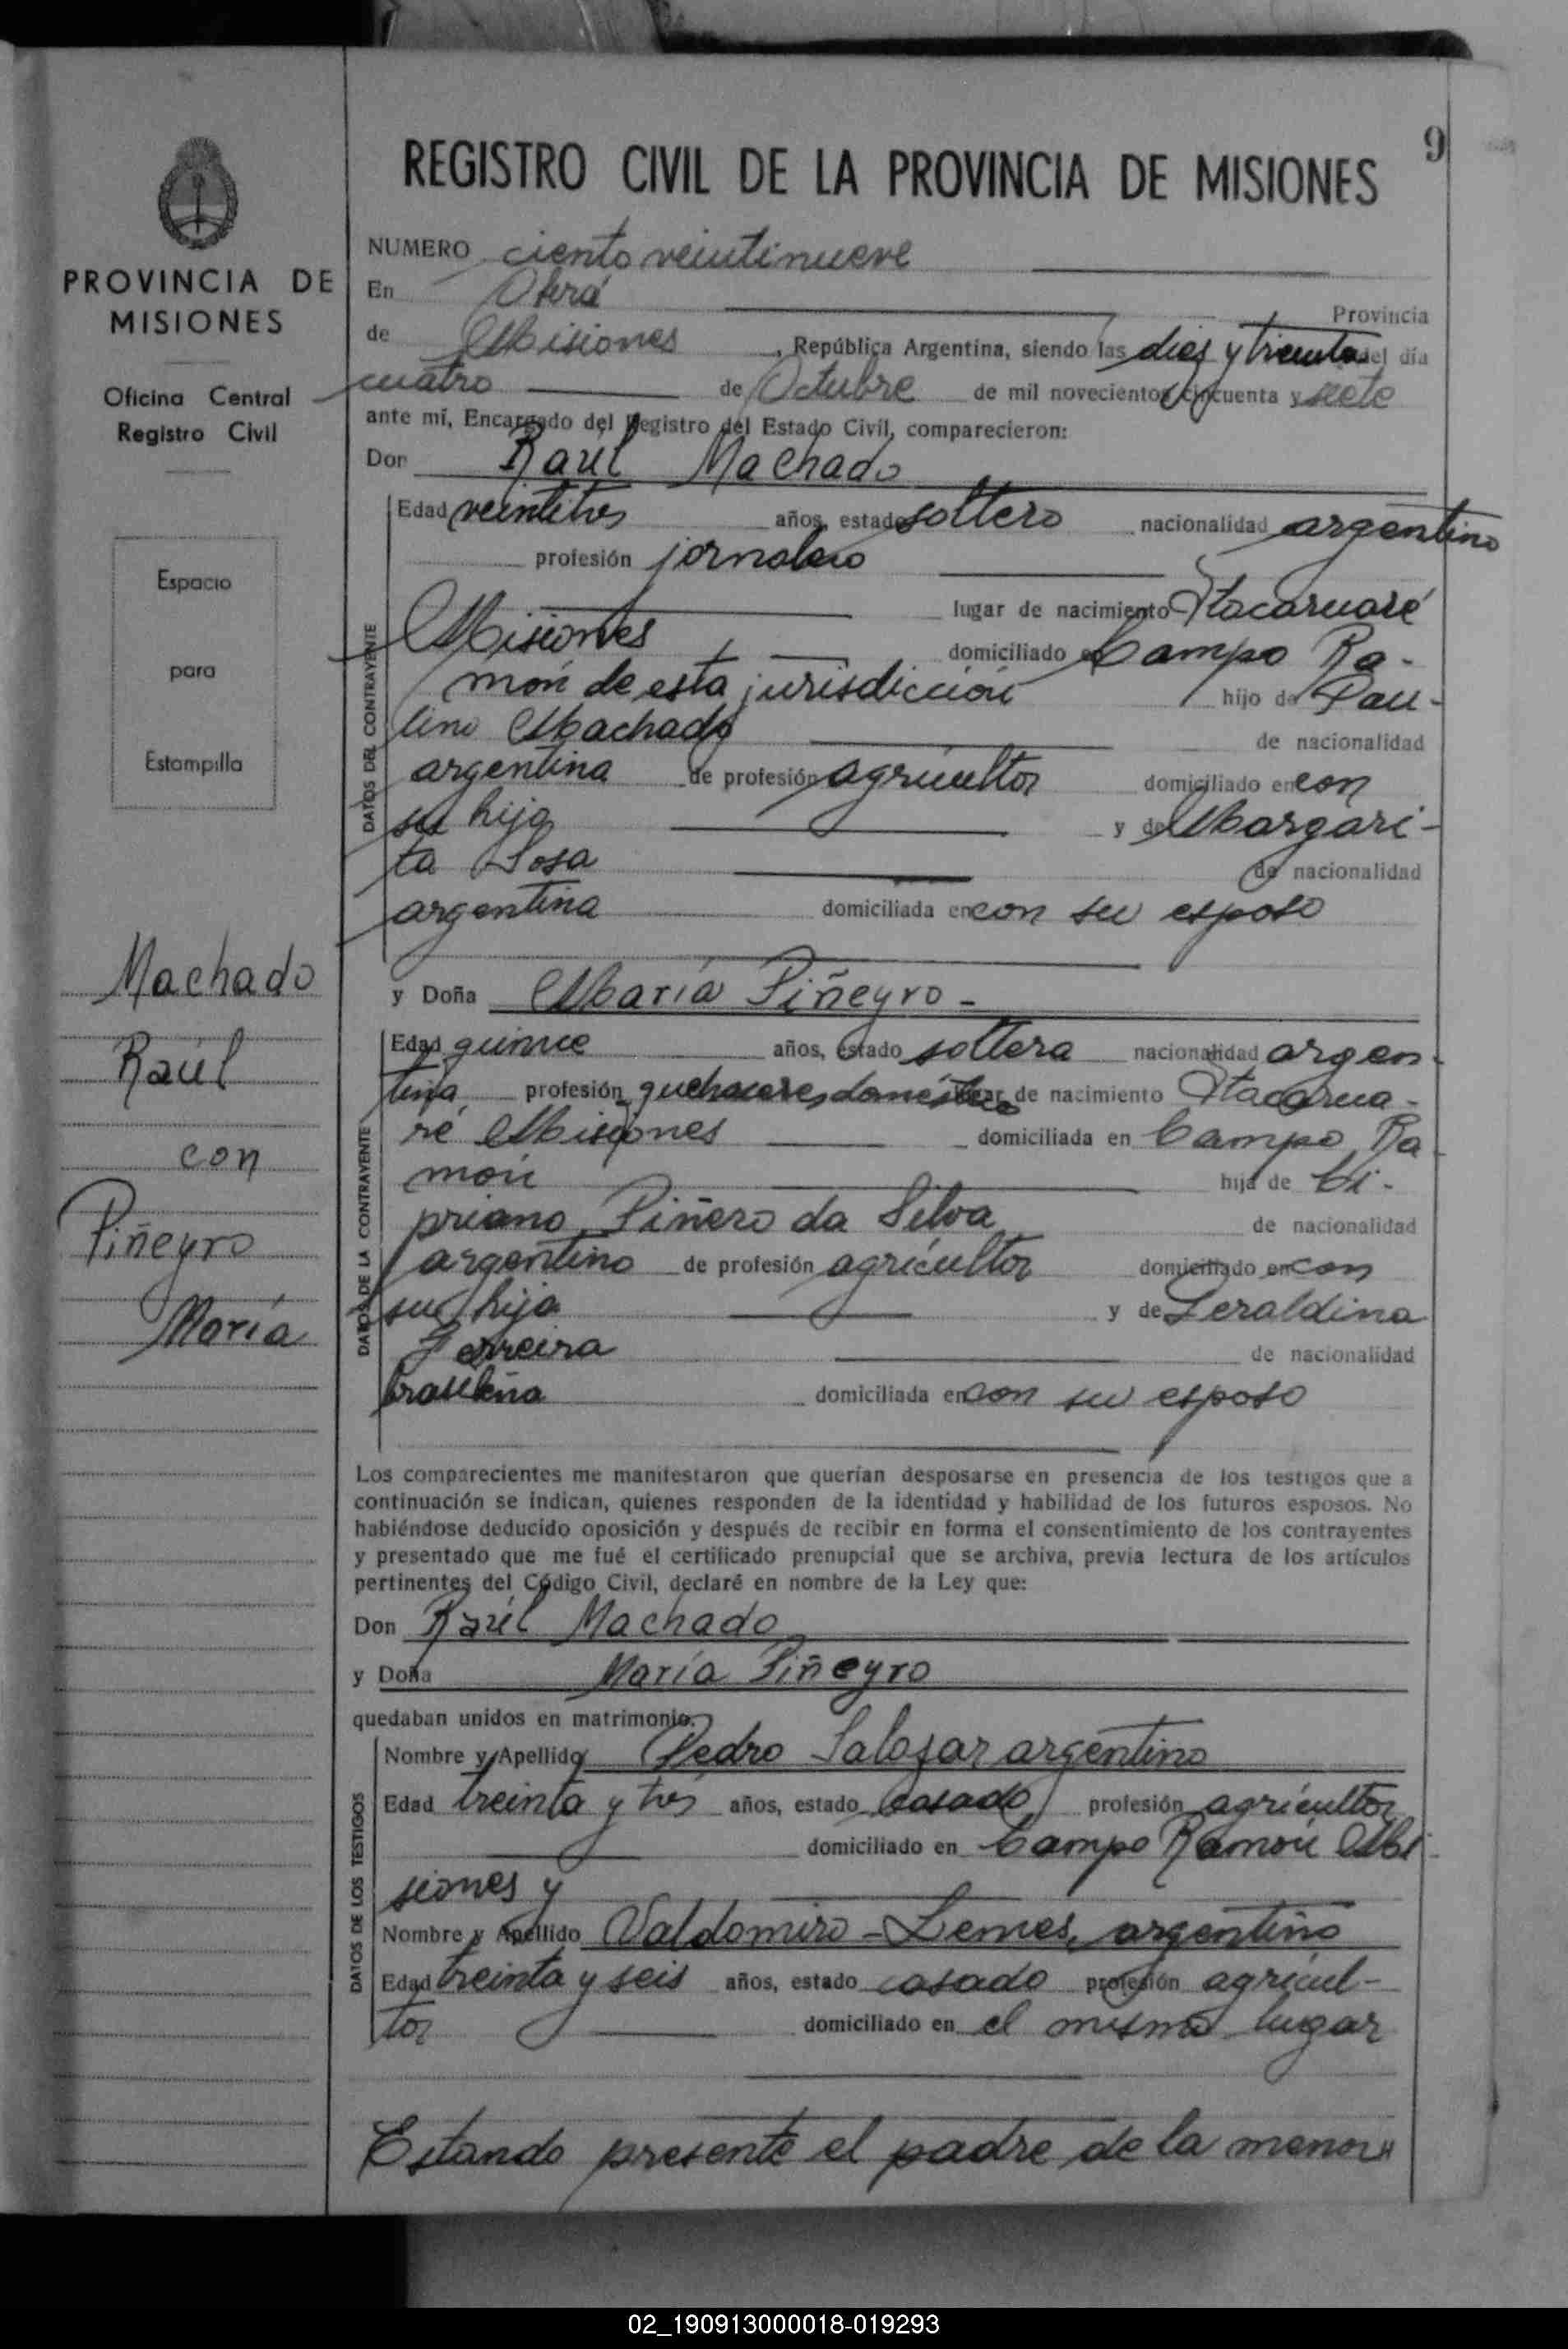 9
REGISTRO CIVIL DE LA PROVINCIA DE MISIONES
PROVINCIA DE
MISIONES
Oficina Central
Registro Civil
Espacio
para
Estampilla
Machado
Raúl
con
Piñeyro
María
NUMERO ciento veintinueve
En Oberá Provincia
de Misiones, República Argentina, siendo las diez y treinta del día
cuatro de Octubre de mil novecientos cincuenta y siete
ante mí, Encargado del Registro del Estado Civil, comparecieron:
Don Raúl Machado
DATOS DEL CONTRAYENTE
Edad veintitres años, estado soltero nacionalidad argentino
profesión jornalero
lugar de nacimiento Itacaruaré
Misiones domiciliado en Campo Ra-
món de esta jurisdicción hijo de Pau-
lino Machado de nacionalidad
argentina de profesión agricultor domiciliado en con
su hijo y de Margari-
ta Sosa de nacionalidad
argentina domiciliada en con su esposo
y Doña María Piñeyro -
DATOS DE LA CONTRAYENTE
Edad quince años, estado soltera nacionalidad argen-
tina profesión quehaceres domésticos lugar de nacimiento Itacarua-
ré Misiones domiciliada en Campo Ra-
món hija de Ci-
priano Piñero da Silva de nacionalidad
argentino de profesión agricultor domiciliado en con
su hija y de Geraldina
Ferreira de nacionalidad
brasileña domiciliada en con su esposo
Los comparecientes me manifestaron que querían desposarse en presencia de los testigos que a
continuación se indican, quienes responden de la identidad y habilidad de los futuros esposos. No
habiéndose deducido oposición y después de recibir en forma el consentimiento de los contrayentes
y presentado que me fué el certificado prenupcial que se archiva, previa lectura de los artículos
pertinentes del Código Civil, declaré en nombre de la Ley que:
Don Raúl Machado
y Doña María Piñeyro
quedaban unidos en matrimonio.
DATOS DE LOS TESTIGOS
Nombre y Apellido Pedro Salazar argentino
Edad treinta y tres años, estado casado profesión agricultor
domiciliado en Campo Ramón Mi-
siones y
Nombre y Apellido Valdomiro - Lemes, argentino
Edad treinta y seis años, estado casado profesión agricul-
tor domiciliado en el mismo lugar
Estando presente el padre de la menor
02_190913000018-019293